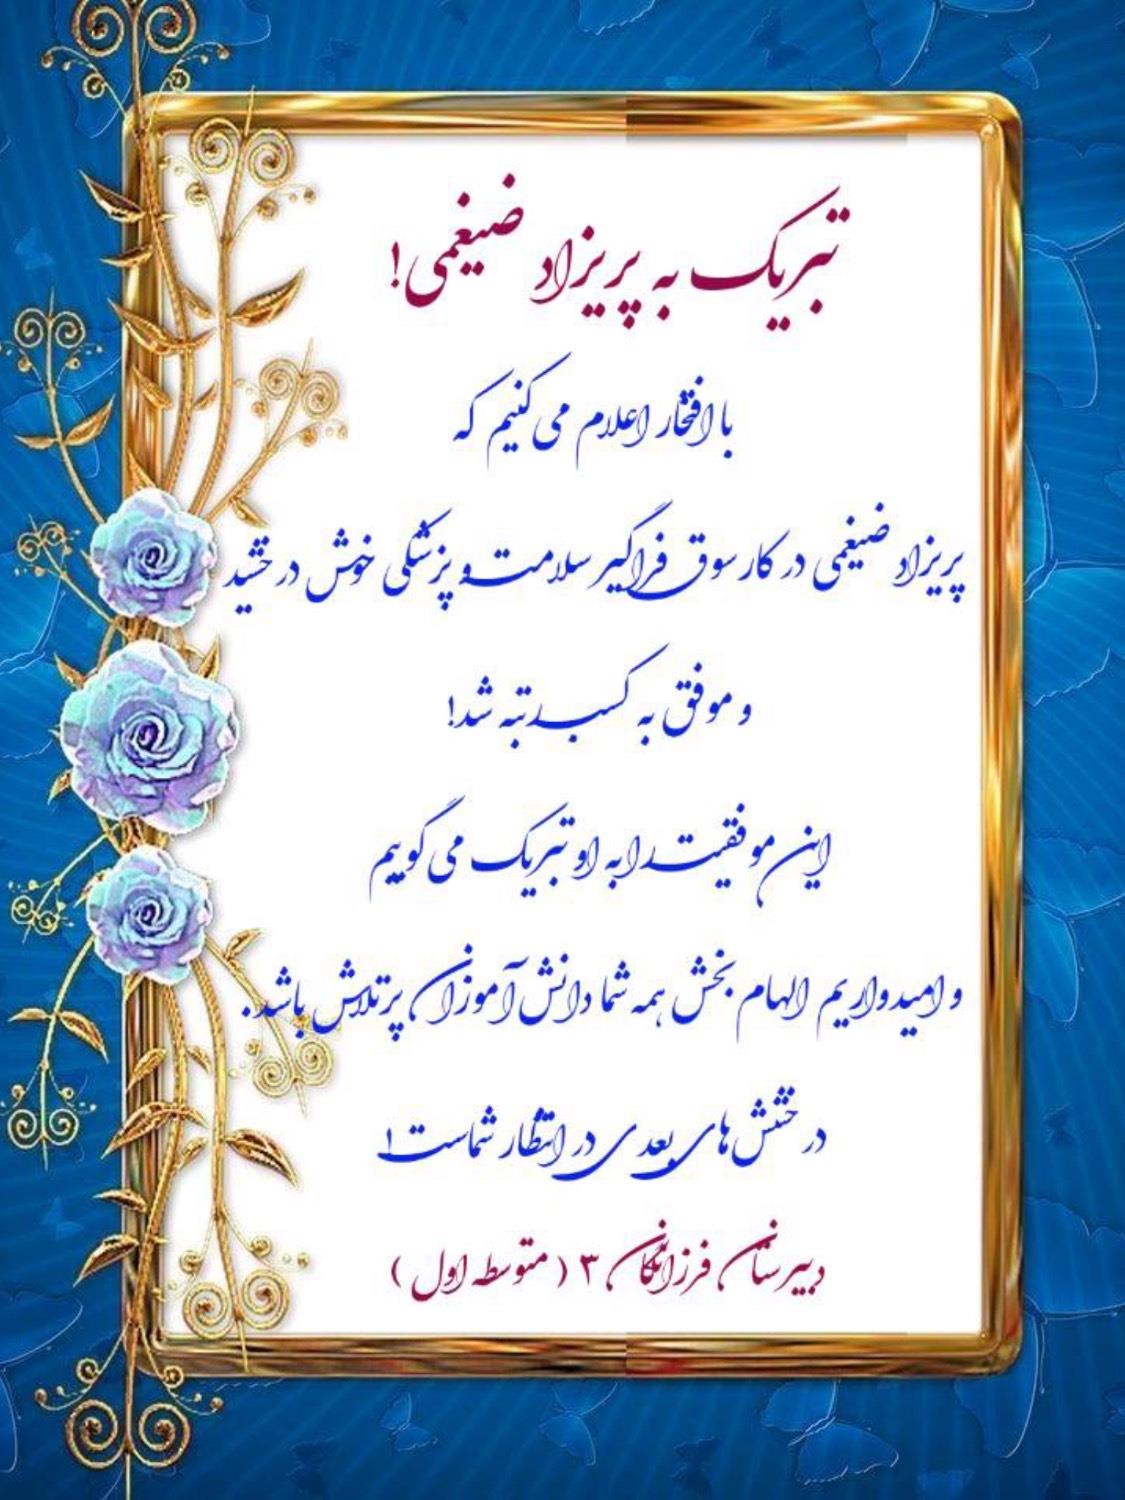 تبریک به پریزاد ضیغمی!
با افتخار اعلام می کنیم که
پریزاد ضیغمی در کارسوق فراگیر سلامت و پزشکی خوش درخشید
و موفق به کسب رتبه شد!
این موفقیت را به او تبریک می گوییم
و امیدواریم الهام بخش همه شما دانش آموزان پرتلاش باشد.
درخشش های بعدی در انتظار شماست!
دبیرستان فرزانگان ۳ ( متوسطه اول )